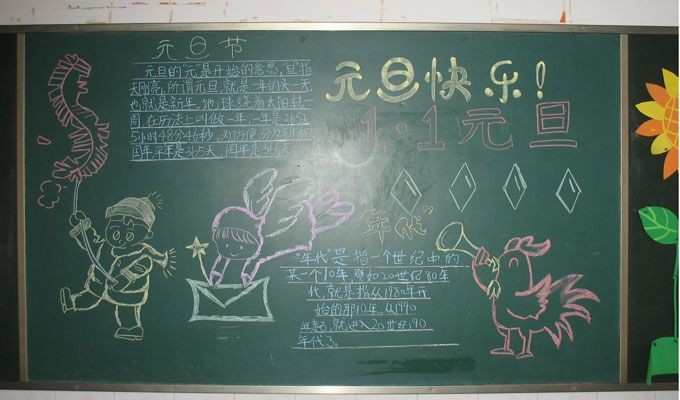 元旦节
元旦的"元"是开始的意思,"旦"指
天刚亮,所谓元旦,就是一年的头一天,
也就是新年,地球绕着太阳转
周,在历法上叫做一年,一年是365
5小时48分46秒,为了方便
年是365天
元旦快乐!
1·1元旦
"年代"
"年代"是指一个世纪中的
某一个10年,譬如20世纪80年
代,就是指从1980年开
始的那10年,从1990
起,就进入20世纪90
年代了。